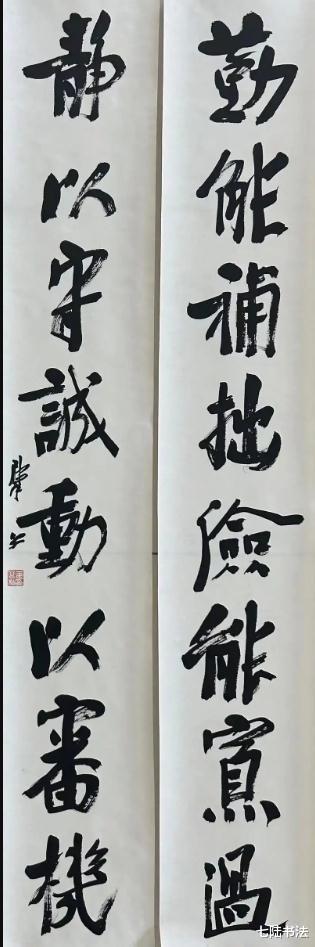 勤能補拙儉能寡過
静以守誠動以審機
七陆书法